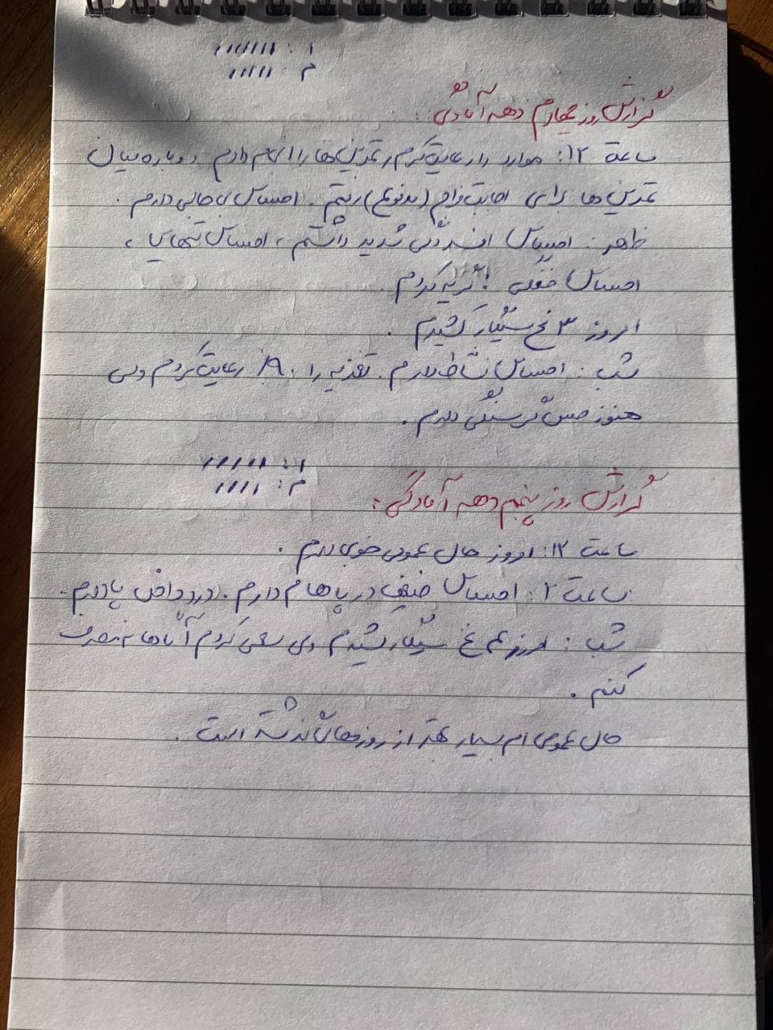 ا: ۱۱۱۱۱۱۱
م: ۱۱۱۱۱
گزارش روز چهارم دهه آمادگی:
ساعت ۱۲: موارد را رعایت کردم، تمرین‌ها را انجام دادم دوباره سیال
تمرین‌ها برای اصابت زخم () رفتم. احساس بی حالی دارم.
ظهر: احساس افسردگی شدید داشتم، احساس تنهایی،
احساس خفگی! گریه کردم.
امروز ۳ نخ سیگار کشیدم.
شب: احساس نشاط دارم. تغذیه را ۹۰٪ رعایت کردم ولی
هنوز حس گرسنگی دارم.
ا: ۱۱۱۱۱۱
م: ۱۱۱۱
گزارش روز پنجم دهه آمادگی:
ساعت ۱۲: امروز حال عمومی خوبی دارم.
ساعت ۲: احساس ضعف در پاهام دارم. درد داخل پا دارم.
شب: امروز ۴ نخ سیگار کشیدم ولی سعی کردم آنها را مصرف
کنم.
حال عمومی ام بسیار بهتر از روزهای گذشته است.